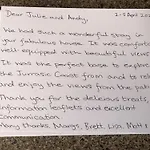 Dear Julie and Andy, 2-5 April 202
We had such a wonderful stay in
your fabulous house. It was comforta
well equipped with beautiful views
It was the perfect base to explore
the Jurassic Coast from and to rela
and enjoy the views from the patio
Thank you for the delicious breads,
information leaflets and excellent
communication.
Many thanks, Margs, Brett, Lisa, Matt